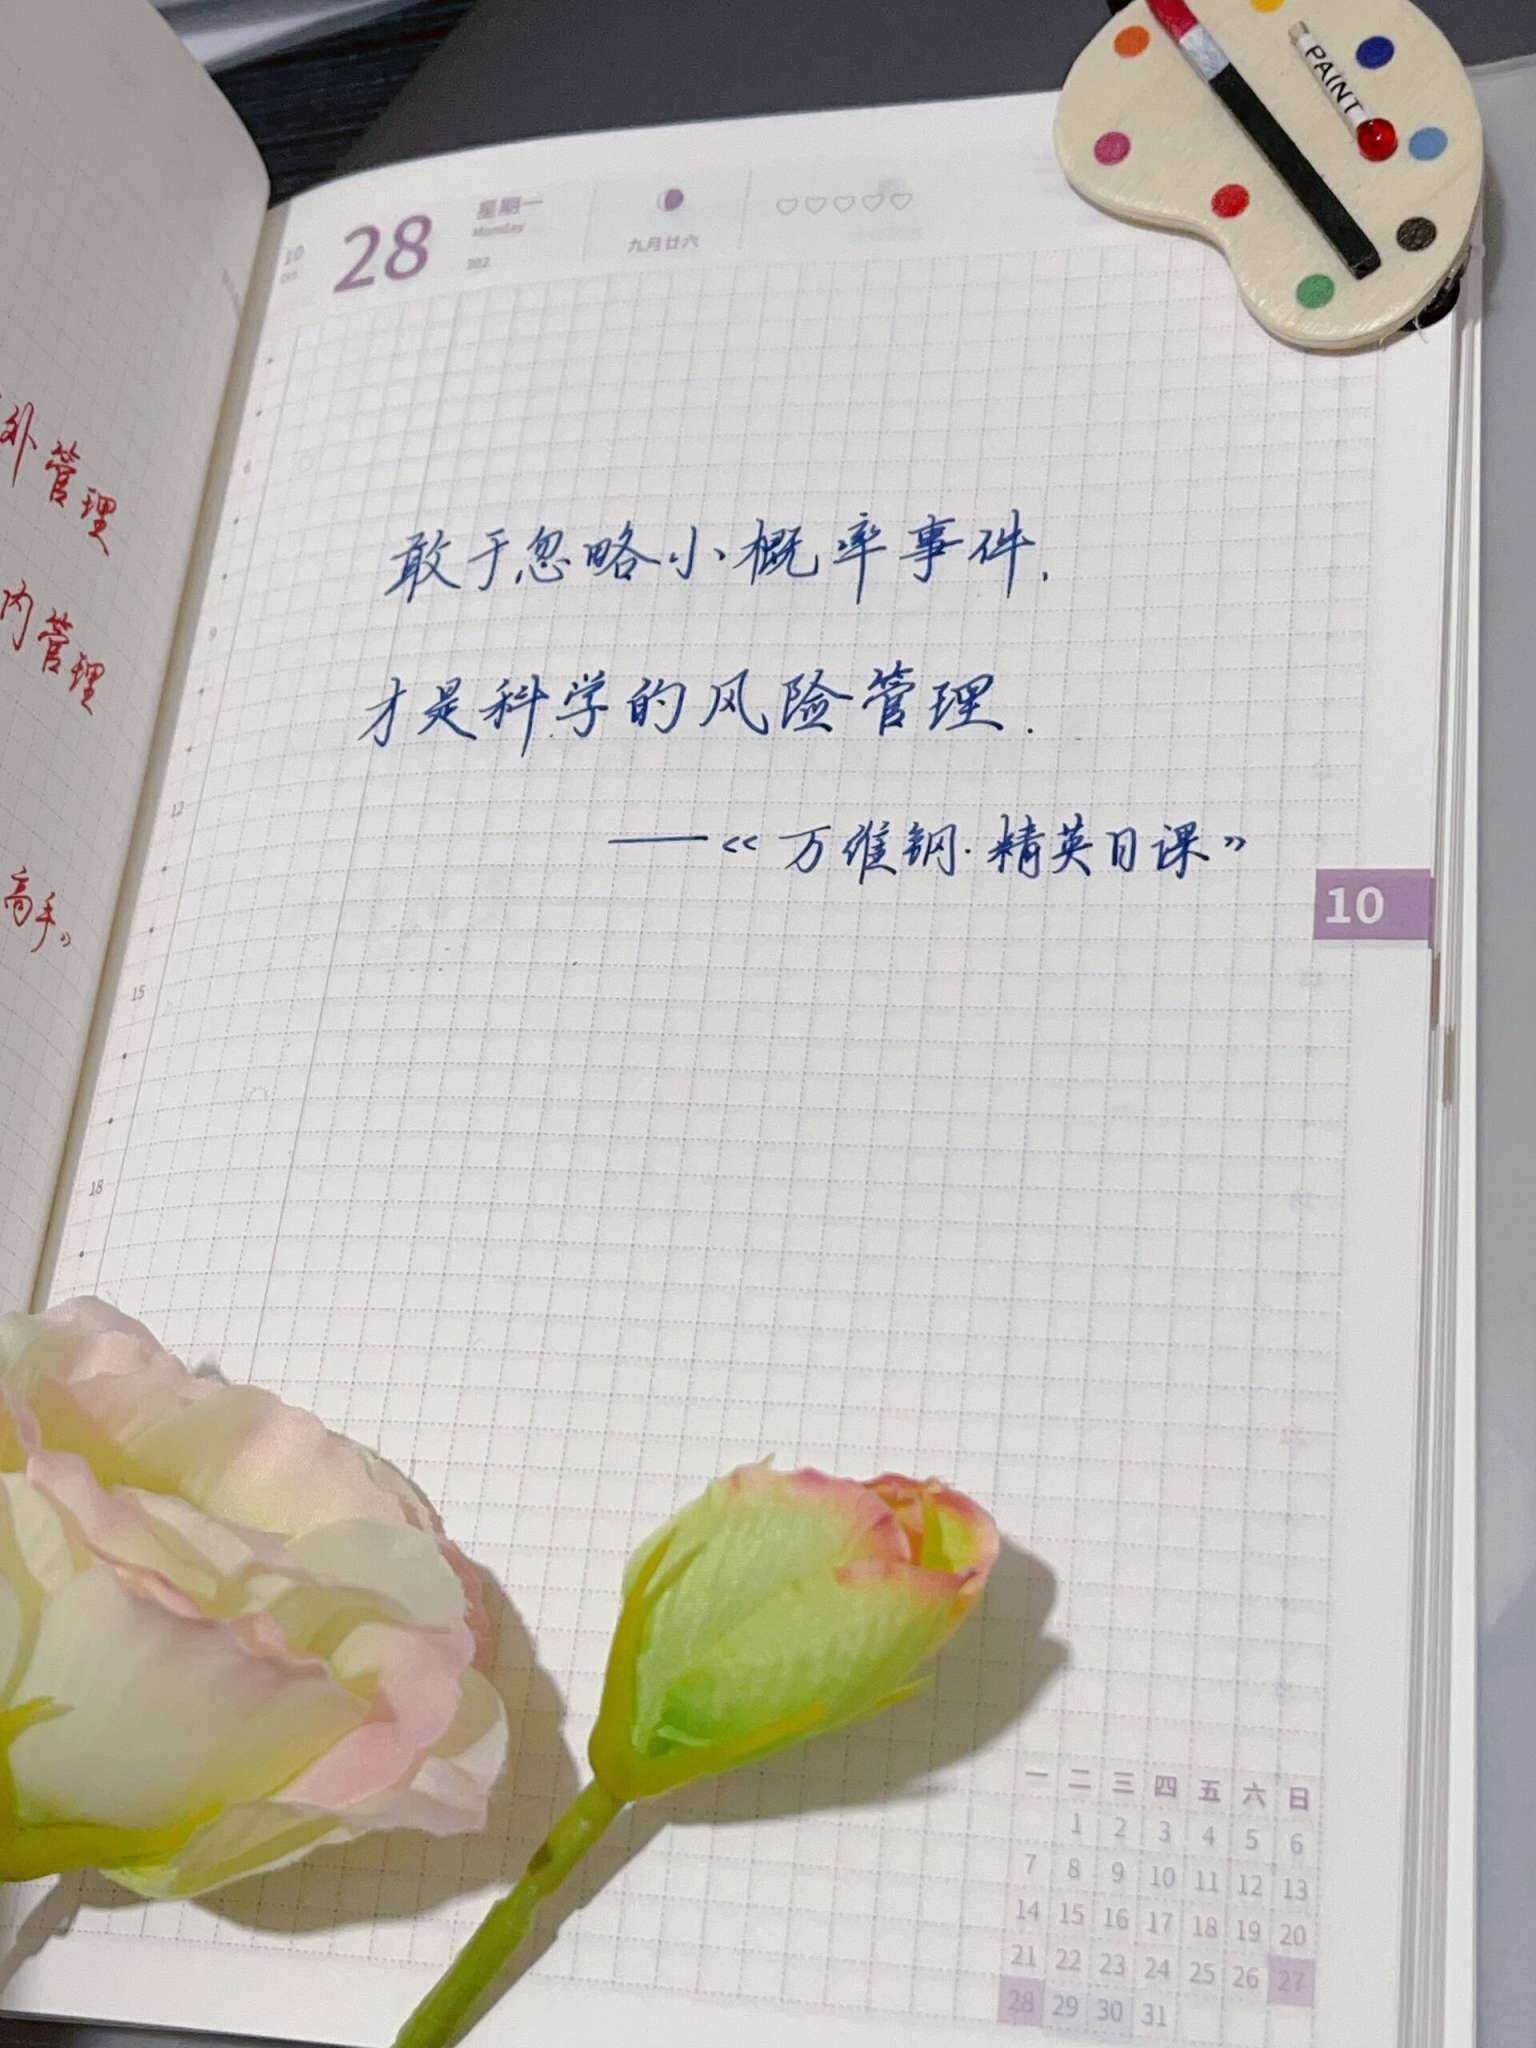 外管理
内管理
高手》
10
28
星期一
Monday
302
九月廿六
PAINT
敢于忽略小概率事件.
才是科学的风险管理.
——《万维钢·精英日课》
10
9
12
15
18
一 二 三 四 五 六 日
1 2 3 4 5 6
7 8 9 10 11 12 13
14 15 16 17 18 19 20
21 22 23 24 25 26 27
28 29 30 31